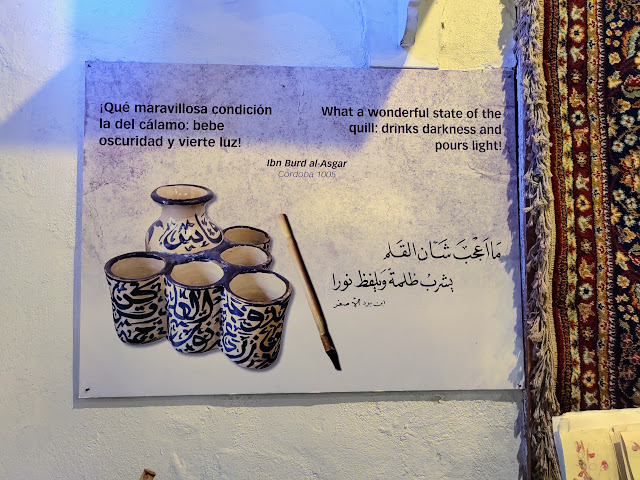 ¡Qué maravillosa condición
la del cálamo: bebe
oscuridad y vierte luz!
What a wonderful state of the
quill: drinks darkness and
pours light!
Ibn Burd al-Asgar
Córdoba 1005
ما اعجب شان القلم
يشرب ظلمة ويلفظ نورا
ابن برد